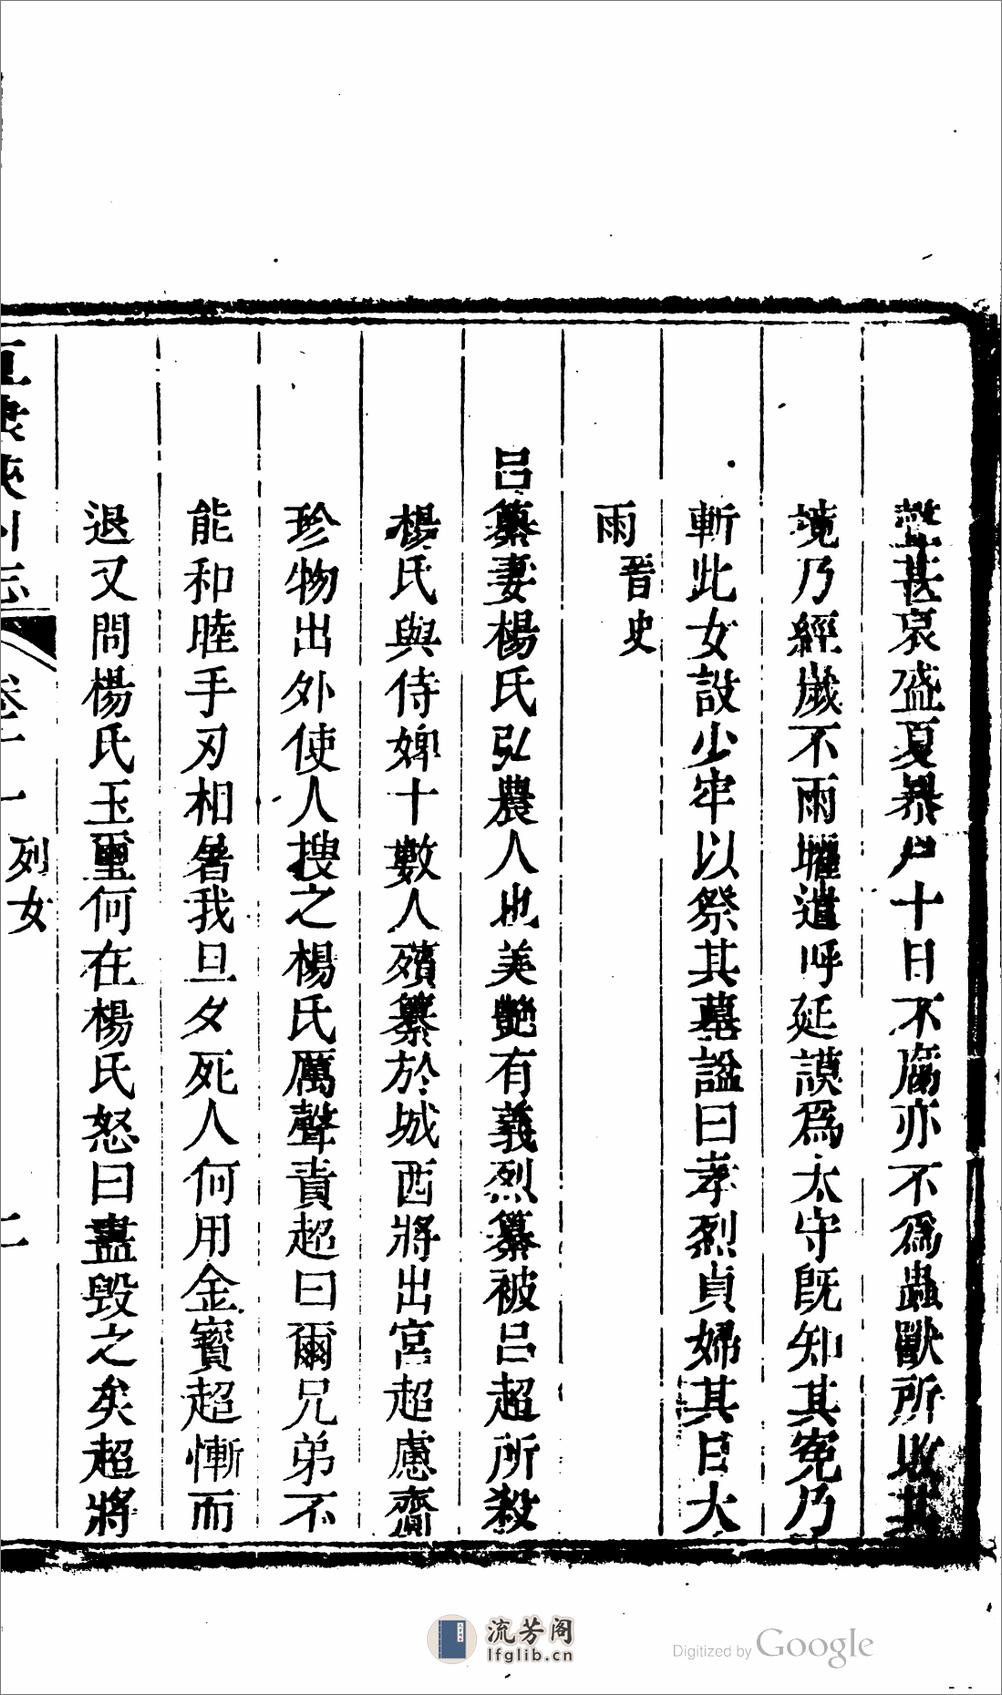 聲甚哀盛夏暴尸十日不腐亦不爲蟲獸所敗其
境乃經歲不雨壥遣呼延謨爲太守旣知其冤乃
斬此女設少牢以祭其墓謚曰孝烈貞婦其日大
雨晉史
呂纂妻楊氏弘農人也美艷有義烈纂被呂超所殺
楊氏與侍婢十數人殯纂於城西將出宮超慮齎
珍物出外使人搜之楊氏厲聲責超曰爾兄弟不
能和睦手刃相署我旦夕死人何用金寶超慚而
退又問楊氏玉璽何在楊氏怒曰盡毁之矣超將
列女
流芳阁
lfglib.cn
Digitized by Google